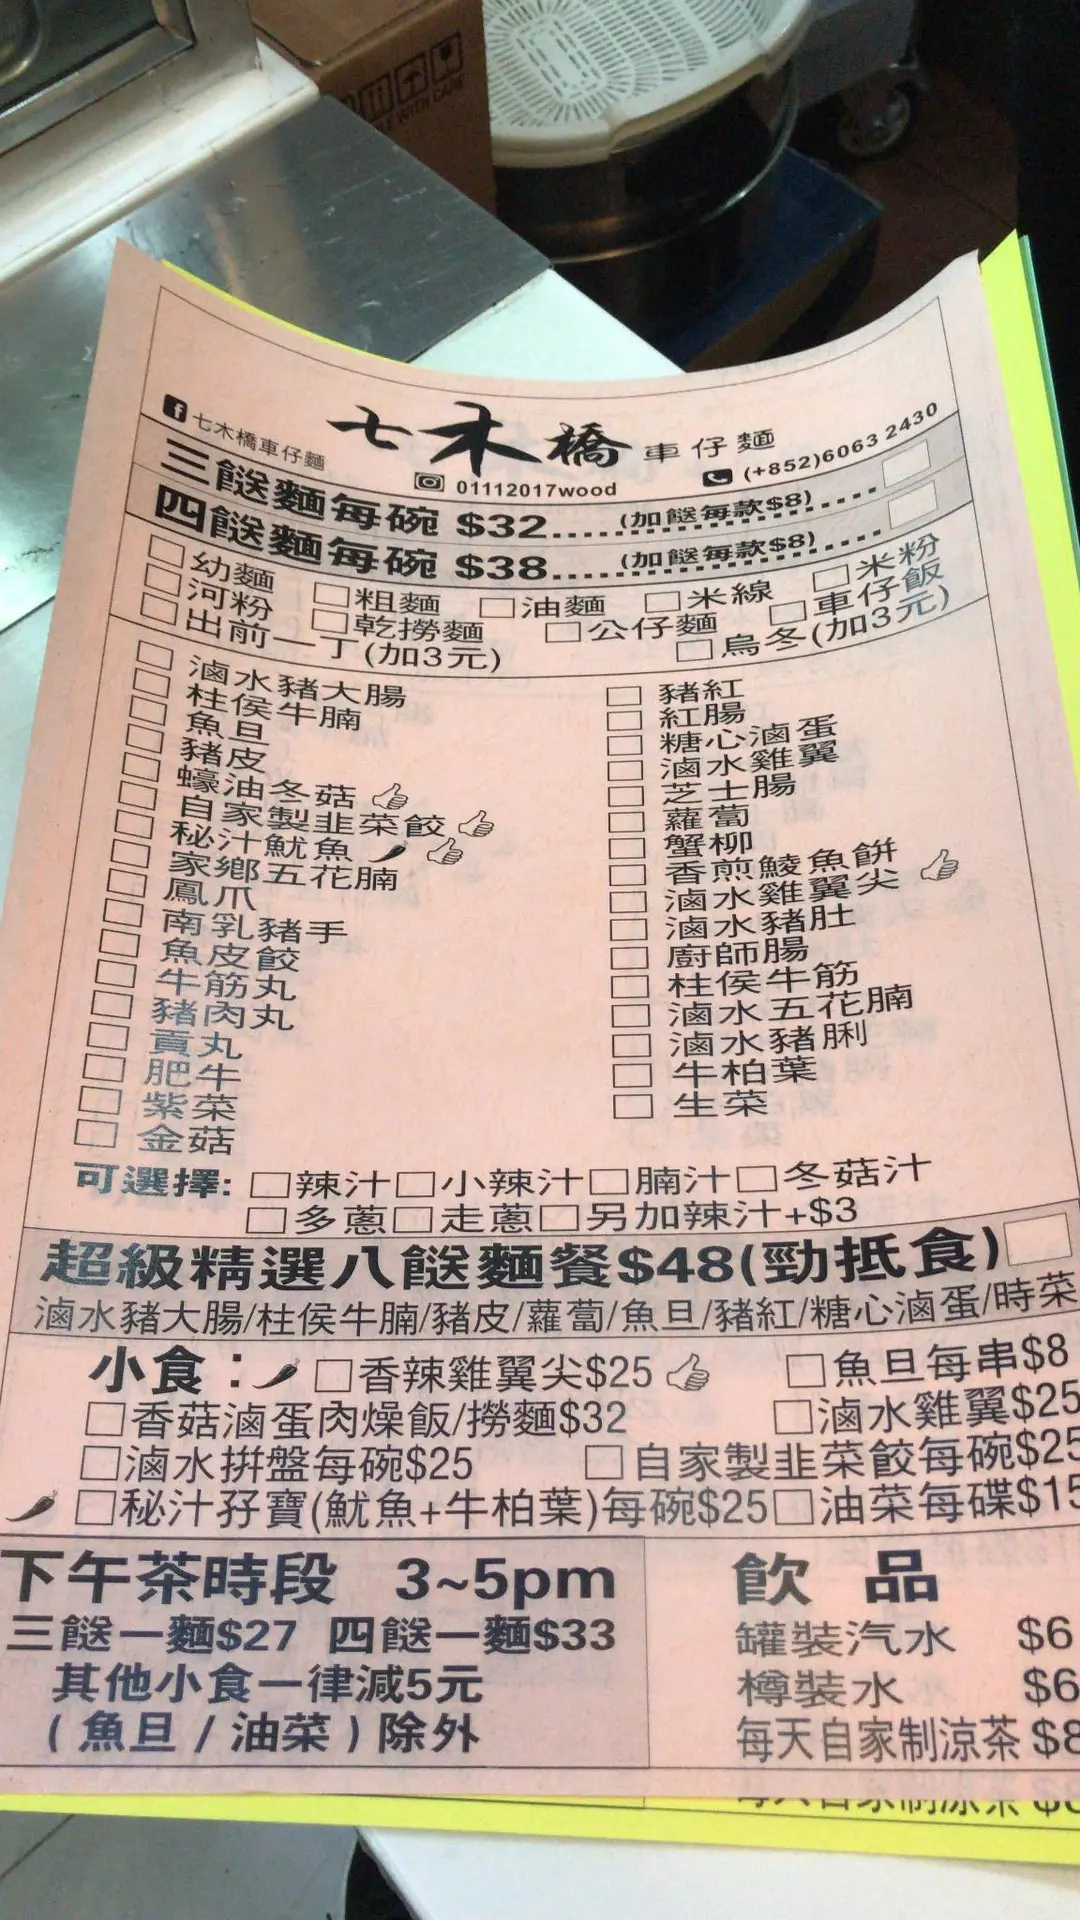 WITH CARE
七木橋車仔麵
七木橋 車仔麵
01112017wood
(+852)6063 2430
三餸麵每碗 $32......(加餸每款$8)......
四餸麵每碗 $38......(加餸每款$8)......
□幼麵 □粗麵 □油麵 □米線 □米粉
□河粉 □乾撈麵 □公仔麵 □車仔飯
□出前一丁(加3元) □烏冬(加3元)
□滷水豬大腸 □豬紅
□柱侯牛腩 □紅腸
□魚旦 □糖心滷蛋
□豬皮 □滷水雞翼
□蠔油冬菇 □芝士腸
□自家製韭菜餃 □蘿蔔
□秘汁魷魚 □蟹柳
□家鄉五花腩 □香煎鯪魚餅
□鳳爪 □滷水雞翼尖
□南乳豬手 □滷水豬肚
□魚皮餃 □廚師腸
□牛筋丸 □柱侯牛筋
□豬肉丸 □滷水五花腩
□貢丸 □滷水豬脷
□肥牛 □牛柏葉
□紫菜 □生菜
□金菇
可選擇: □辣汁□小辣汁□腩汁□冬菇汁
□多蔥□走蔥□另加辣汁+$3
超級精選八餸麵餐$48(勁抵食)
滷水豬大腸/柱侯牛腩/豬皮/蘿蔔/魚旦/豬紅/糖心滷蛋/時菜
小食: □香辣雞翼尖$25 □魚旦每串$8
□香菇滷蛋肉燥飯/撈麵$32 □滷水雞翼$25
□滷水拼盤每碗$25 □自家製韭菜餃每碗$25
□秘汁孖寶(魷魚+牛柏葉)每碗$25□油菜每碟$15
下午茶時段 3~5pm
三餸一麵$27 四餸一麵$33
其他小食一律減5元
(魚旦/油菜)除外
飲品
罐裝汽水 $6
樽裝水 $6
每天自家制涼茶 $8
每天自家制涼茶 $8